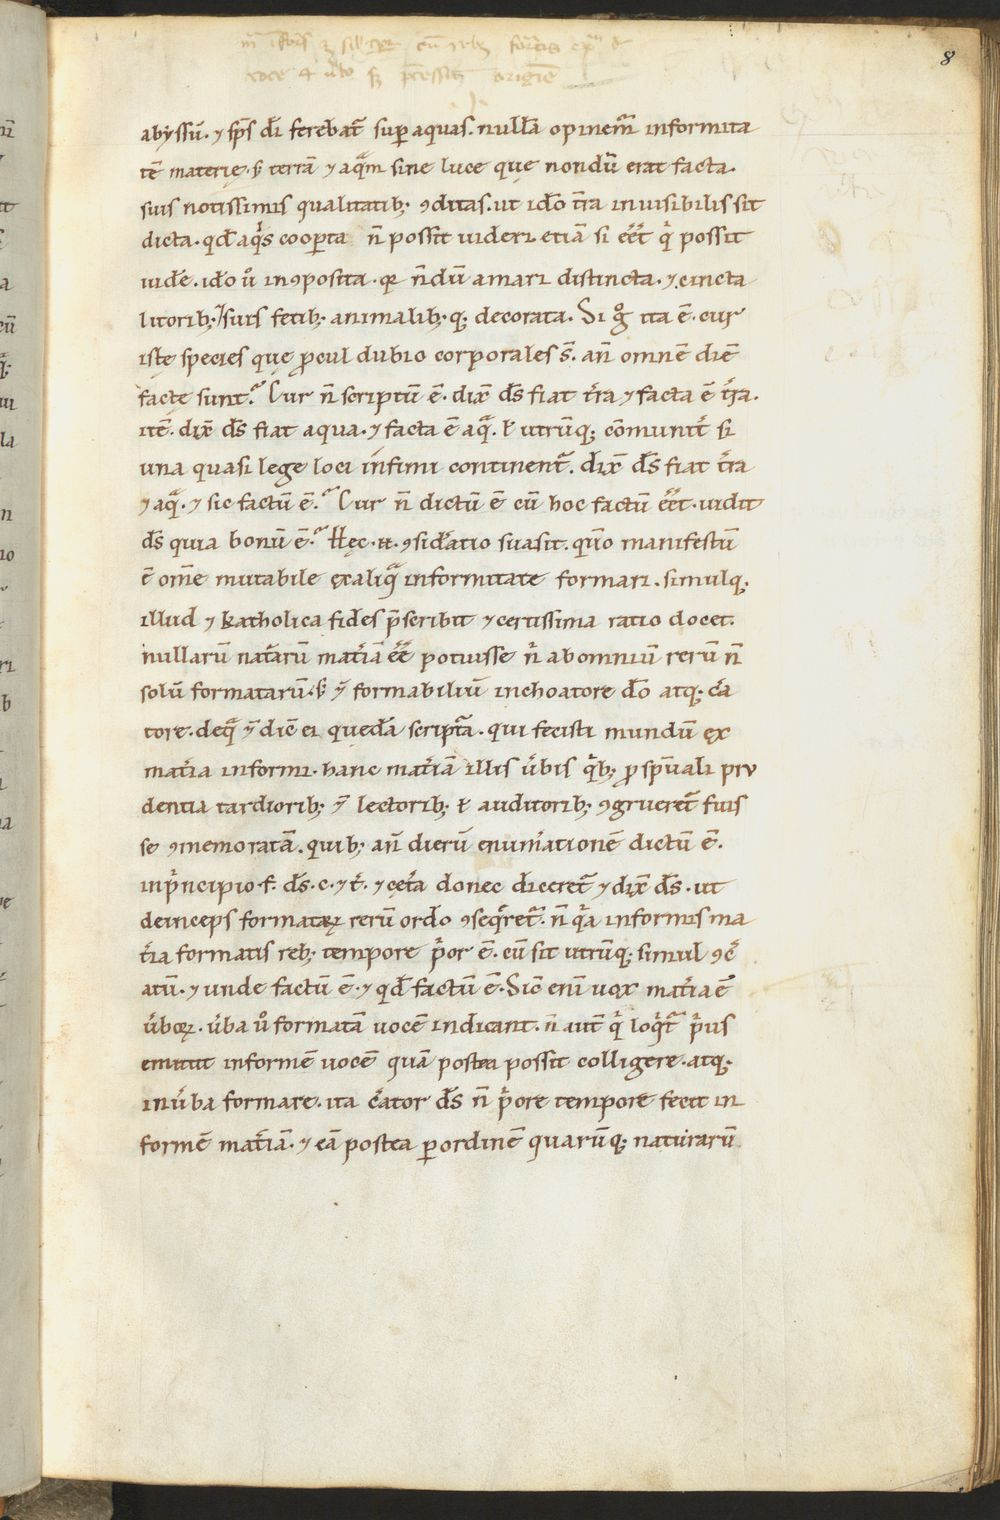 8
abyssū. ⁊ sp̄s di ferebat̄ sup aquas. nullā opinem̄ informita
tē materię. s; terrā ⁊ aquā sine luce que nondū erat facta.
suis notissimis qualitatib; ꝯditas. ut ido t̄ra inuisibilis sit
dicta. qd̄ aq̇s cooperta n̄ possit uideri etiā si eēt q̇ possit
uide. ido u̇o inꝯposita. qr n̄dū a mari distincta. ⁊ cincta
litorib; suis fetib; animalib; q; decorata. Si g̊ ita ē. cur
istę species que ꝓcul dubio corporales s̄. an̄ omnē diē
factę sunt? Cur n̄ scriptū ē. dix̄ ds̄ fiat t̄ra ⁊ facta ē t̄ra.
itē. dix̄ ds̄ fiat aqua. ⁊ facta ē aq̄. ł utrūq; cōmunit̄ si
una quasi lege loci infimi continent̄. dix̄ ds̄ fiat t̄ra
⁊ aq̄. ⁊ sic factū ē? Cur n̄ dictū ē cū hoc factū eēt. uidit
ds̄ quia bonū ē? Hęc. n. ꝯsidatio suasit. qm̄o manifestū
ē om̄e mutabile exaliq̄ informitate formari. simulq;
illud ⁊ katholica fides p̄scribit ⁊ certissima ratio docet.
nullarū naturarū mat̄iā eē potuisse n̄ ab omniū rerū n̄
solū formatarū. s; ⁊ formabiliū inchoatore dō atq; c̄a
tore. deq̄ ⁊ dic̄ ei quedā script̄a. qui fecisti mundū ex
mat̄ia informi. hanc mat̄iā illis u̇bis q̇b; ꝓ sp̄uali pru
dentia tardiorib; ⁊ lectorib; ł auditorib; ꝯgrueret̄ fuis
se ꝯmemoratā. quib; an̄ dierū enum̄ationē dictū ē.
inṗncipio. f. ds̄. c. ⁊ t̄. ⁊ cęt̄a donec diceret̄ ⁊ dix̄ ds̄. ut
deinceps formataꝝ rerū ordo ꝯseq̄ret̄. n̄ q̄a informis ma
t̄ia formatis reb; tempore ṗor ē. cū sit utrūq; simul ꝯc̄
atū. ⁊ unde factū ē. ⁊ qd̄ factū ē. Sic̄ enī uox mat̄ia ē
u̇boꝝ. u̇ba u̇o formatā uocē indicant. n̄ aut̄ q̇ loq̇t̄ ṗus
emittit informē uocē quā postea possit colligere. atq;
inu̇ba formare. ita c̄ator ds̄ n̄ ṗore tempore fecit in
formē mat̄iā. ⁊ eā postea ꝑ ordinē quarūq; naturarū